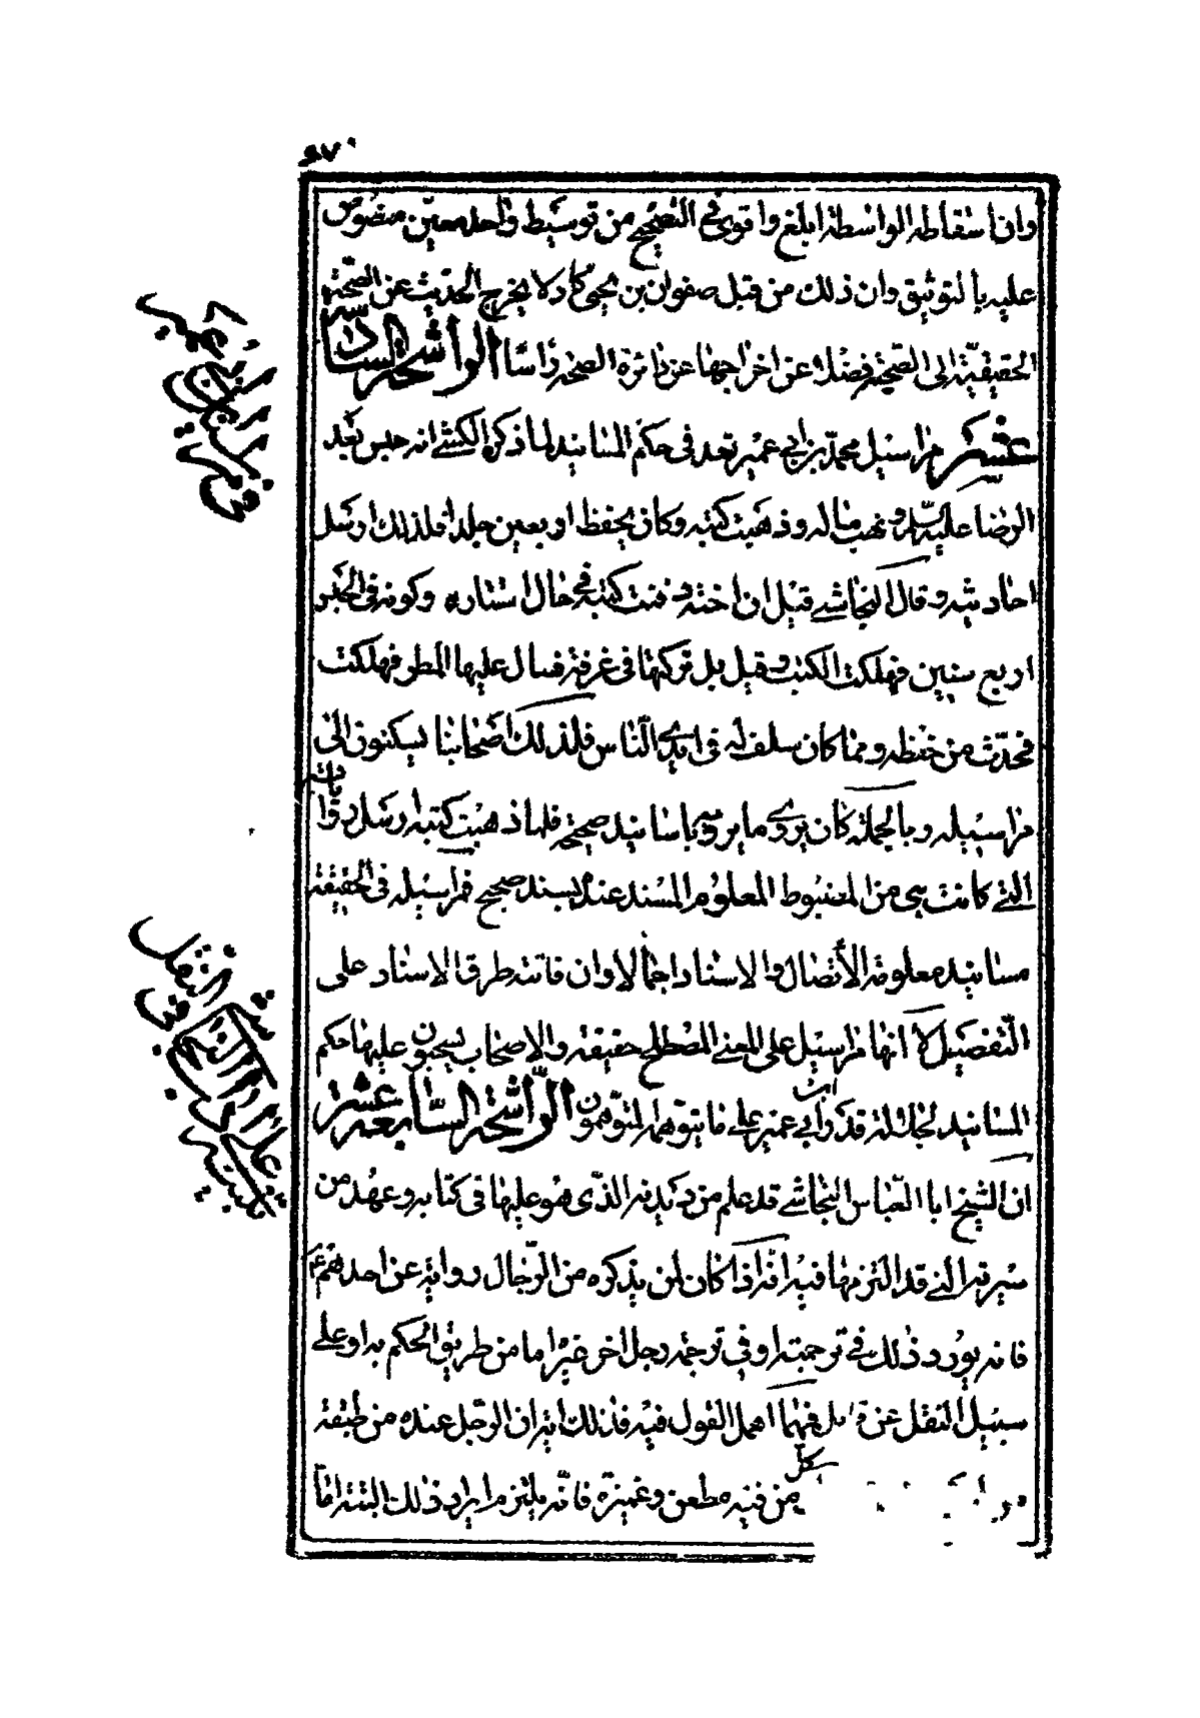 ٦٧
وان اسقاطه الواسطة ابلغ واقوى في التصحيح من توسيط واحد معين منصوص
عليه بالتوثيق وان ذلك من قبل صفوان بن يحيى كاد لا يخرج الحديث عن الصحة
الحقيقية الى الصحية فضلا عن اخراجها عن دائرة الصحة راسا الواشحة السادسة
عشر مراسيل محمد بن ابي عمير تعد في حكم المسانيد لما ذكره الكشي انه حبس بعد
الرضا عليه السلم ونهب ماله وذهبت كتبه وكان يحفظ اربعين جلدا فلذلك ارسل
احاديثه وقال النجاشي قيل ان اخته دفنت كتبه في حال استتاره وكونه في الحبس
اربع سنين فهلكت الكتب وقيل بل تركتها في غرفة فسال عليها المطر فهلكت
فحدث من حفظه ومما كان سلف له في ايدي الناس فلذلك اصحابنا يسكنون الى
مراسيله وبالجملة كان يروي ما يرويه باسانيد صحيحة فلما ذهبت كتبه ارسل رواياته
التي كانت هي من المضبوط المعلوم المسند عنده بسند صحيح فمراسيله في الحقيقة
مسانيد معلومة الاتصال والاسناد اجمالا وان فاتته طرق الاسناد على
التفصيل لا انها مراسيل على المعنى المصطلح حقيقة والاصحاب يسحبون عليها حكم
المسانيد لجلالة قدر ابن ابي عمير على ما يتوهمه المتوهمون الواشحة السابعة عشر
ان الشيخ ابا العباس النجاشي قد علم من ديدنه الذي هو عليها في كتابه وعهد من
سيرته التي قد التزمها فيه انه اذا كان لمن يذكره من الرجال رواية عن احدهم ع
فانه يورد ذلك في ترجمته او في ترجمة رجل اخر غيره اما من طريق الحكم به او على
سبيل النقل عن قائل فمهما اهمل القول فيه فذلك اية ان الرجل عنده من طبقة
كل من فيه مطعن وغميزة فانه يلتزم ايراد ذلك البتة اما
في مراسيل ابن ابي عمير
في النقل